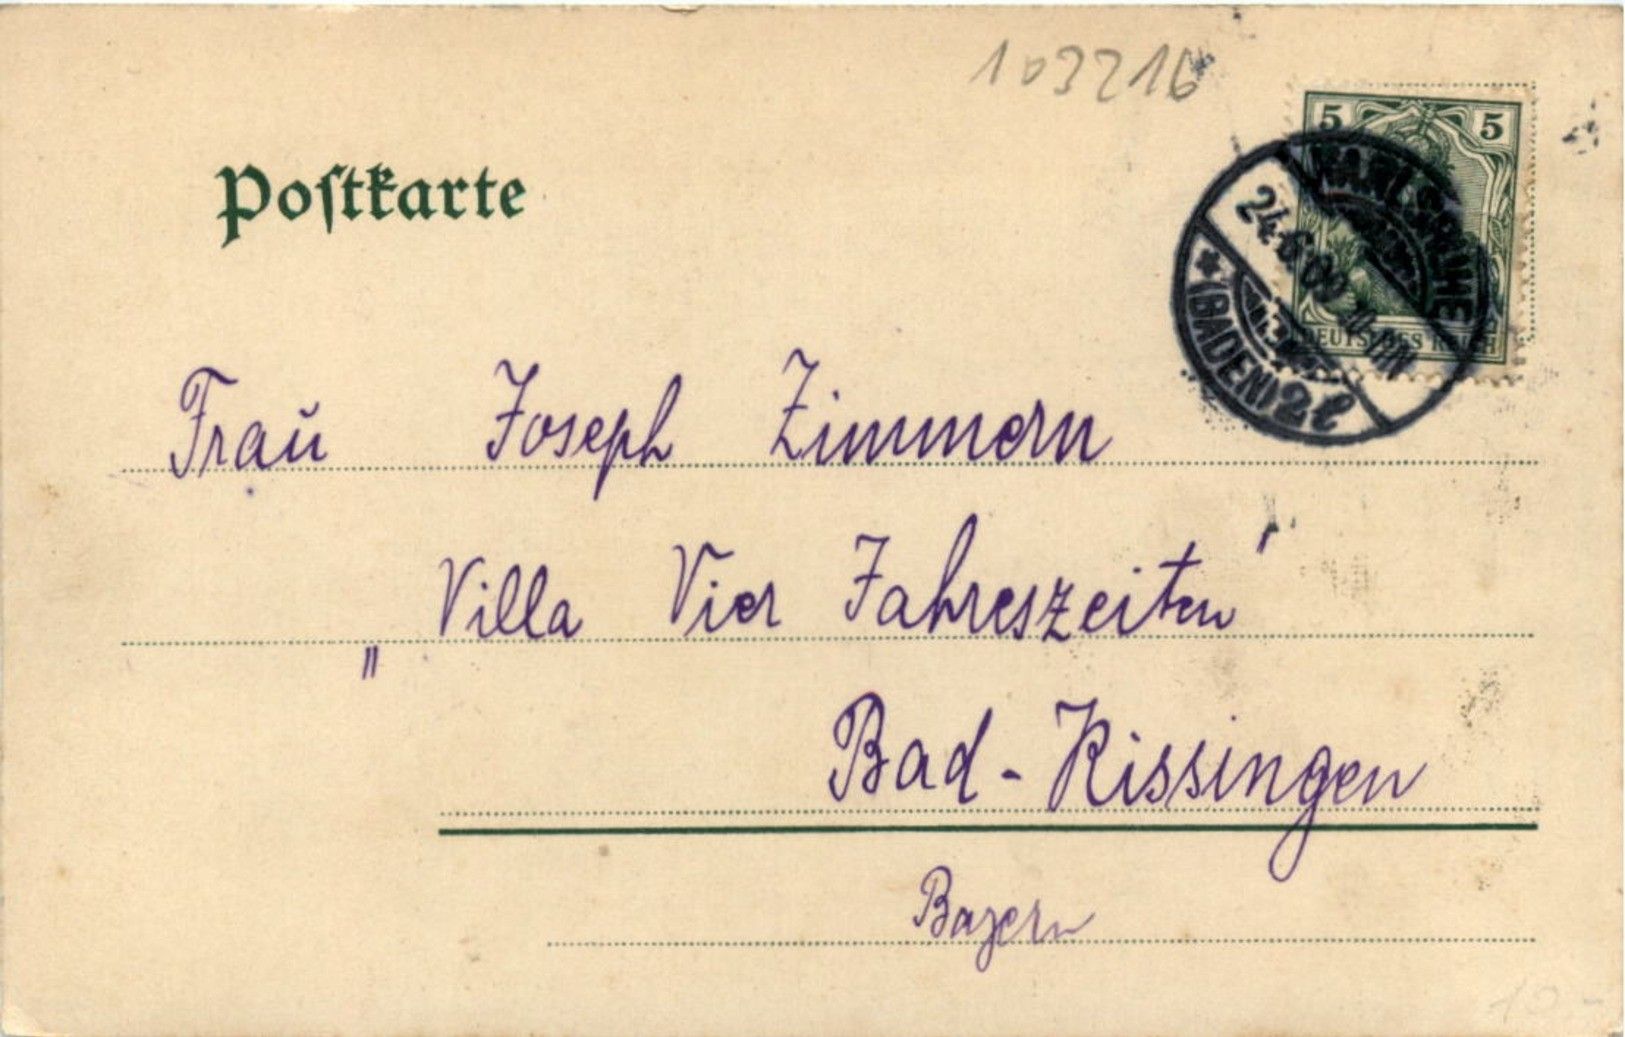 103216
Postkarte
5 5
DEUTSCHES REICH
KARLSRUHE
24.6.09
*(BADEN)2l
Frau Joseph Zimmern
„Villa Vier Jahreszeiten"
Bad-Kissingen
Bayern
10-